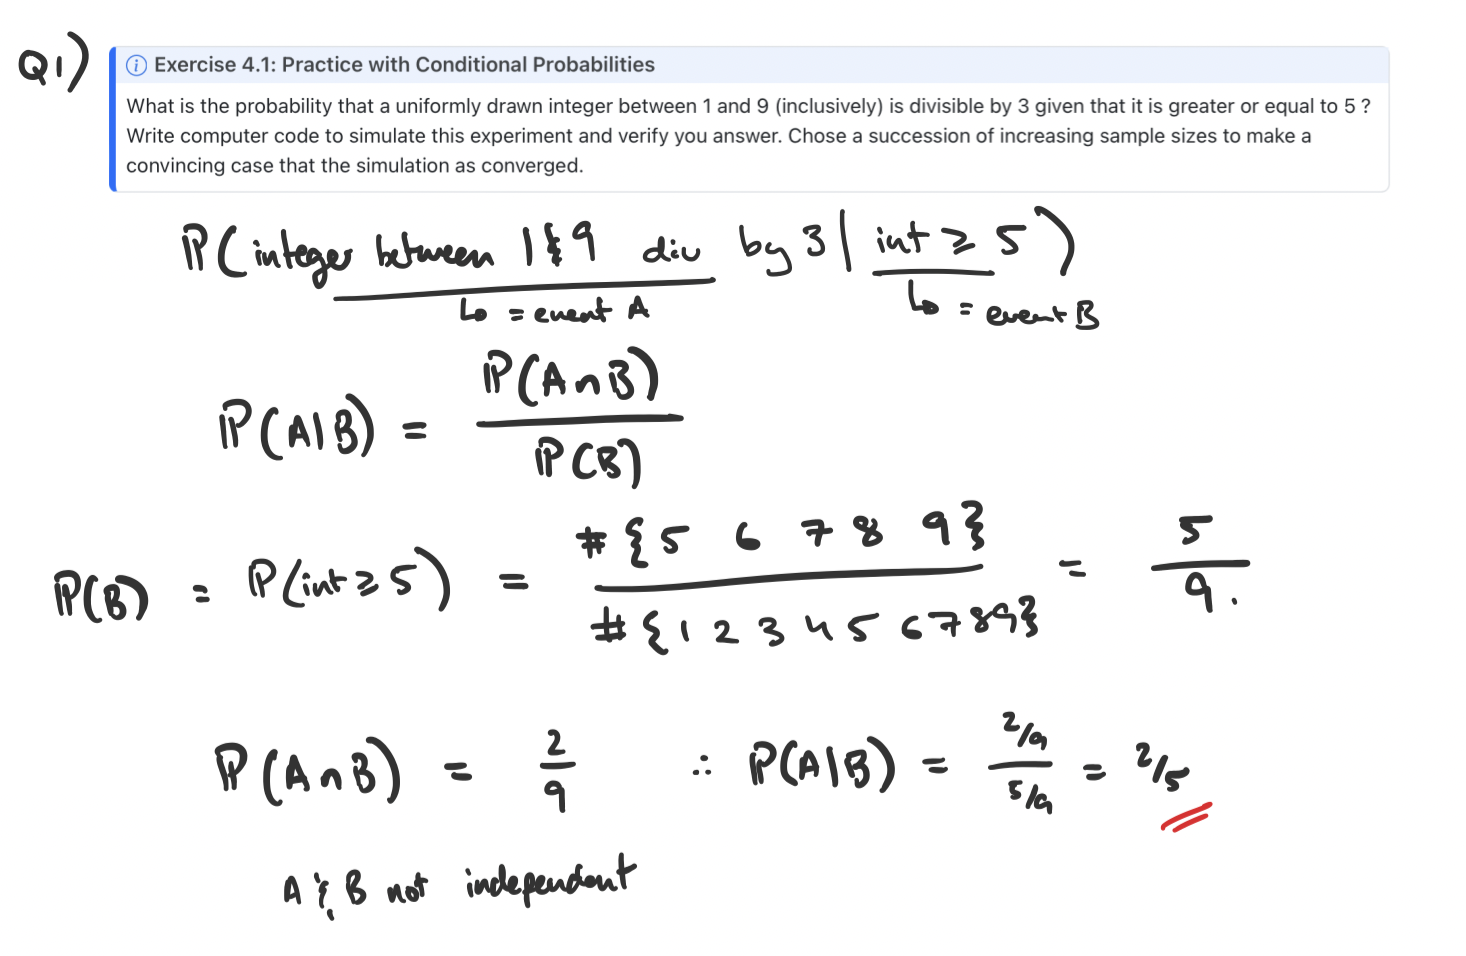 Q1)
Exercise 4.1: Practice with Conditional Probabilities
What is the probability that a uniformly drawn integer between 1 and 9 (inclusively) is divisible by 3 given that it is greater or equal to 5 ?
Write computer code to simulate this experiment and verify you answer. Chose a succession of increasing sample sizes to make a
convincing case that the simulation as converged.
ℙ(integer between 1 & 9 div by 3 | int ≥ 5)
↳ = event A ↳ = event B
ℙ(A|B) = ℙ(A∩B) / ℙ(B)
ℙ(B) = ℙ(int ≥ 5) = #{5 6 7 8 9} / #{1 2 3 4 5 6 7 8 9} = 5/9.
ℙ(A∩B) = 2/9 ∴ ℙ(A|B) = 2/9 / 5/9 = 2/5
A & B not independent